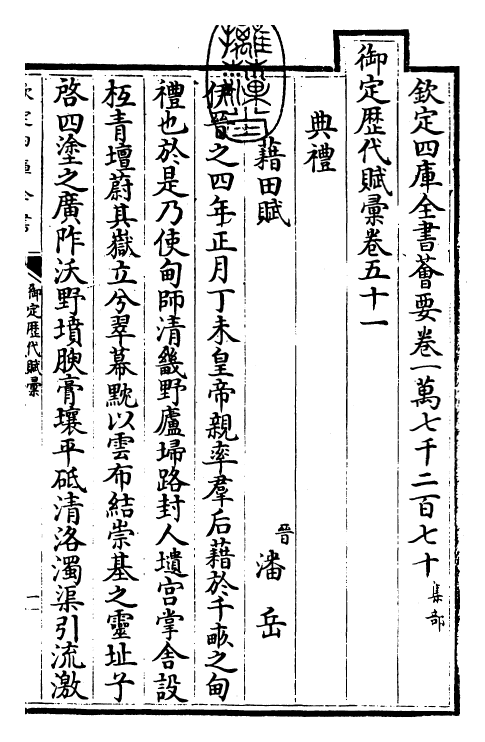 欽定四庫全書薈要卷一萬七千二百七十 集部
御定歷代賦彙卷五十一
典禮
藉田賦 晉 潘岳
伊晉之四年正月丁未皇帝親率羣后藉於千畝之甸
禮也於是乃使甸師清畿野廬埽路封人壝宫掌舍設
枑青壇蔚其嶽立兮翠幕黕以雲布結崇基之靈址兮
啓四塗之廣阼沃野墳腴膏壤平砥清洛濁渠引流激
御定歷代賦彙